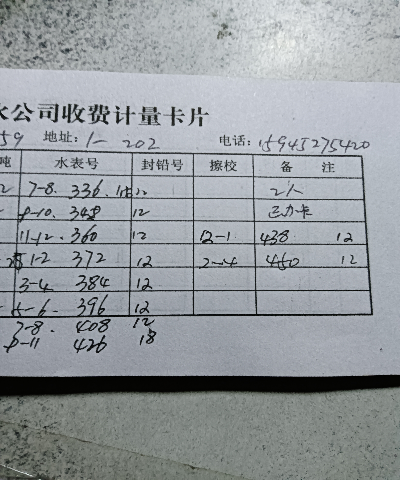 水公司收费计量卡片
59 地址: 1-202 电话: 15945275420
吨 水表号 封铅号 擦校 备 注
7-8. 336. 12
9-10. 348 12
11-12. 360 12 12-1 438 12
1-2 372 12 2-4 450 12
3-4 384 12
5-6. 396 12
7-8. 408 12
9-11 426 18